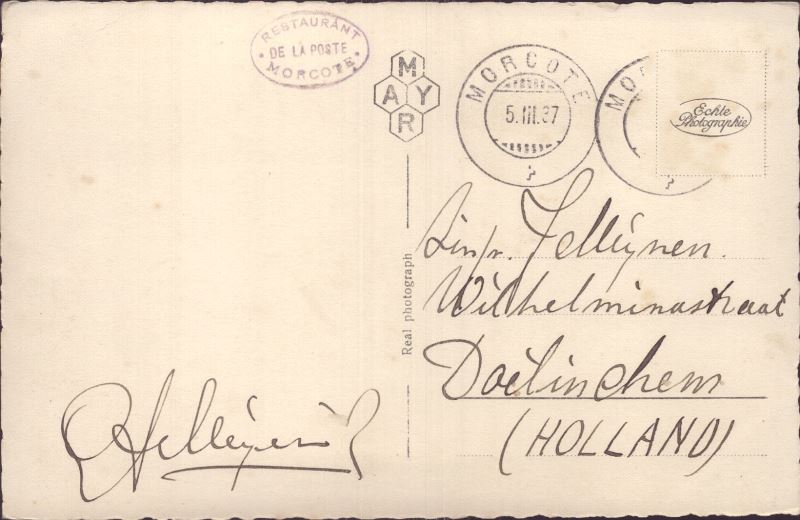 RESTAURANT
DE LA POSTE
MORCOTE
MAYR
MORCOTE
5.III.37
MO
Echte
Photographie
Real photograph
Wilhelminastraat
Doetinchem
(HOLLAND)